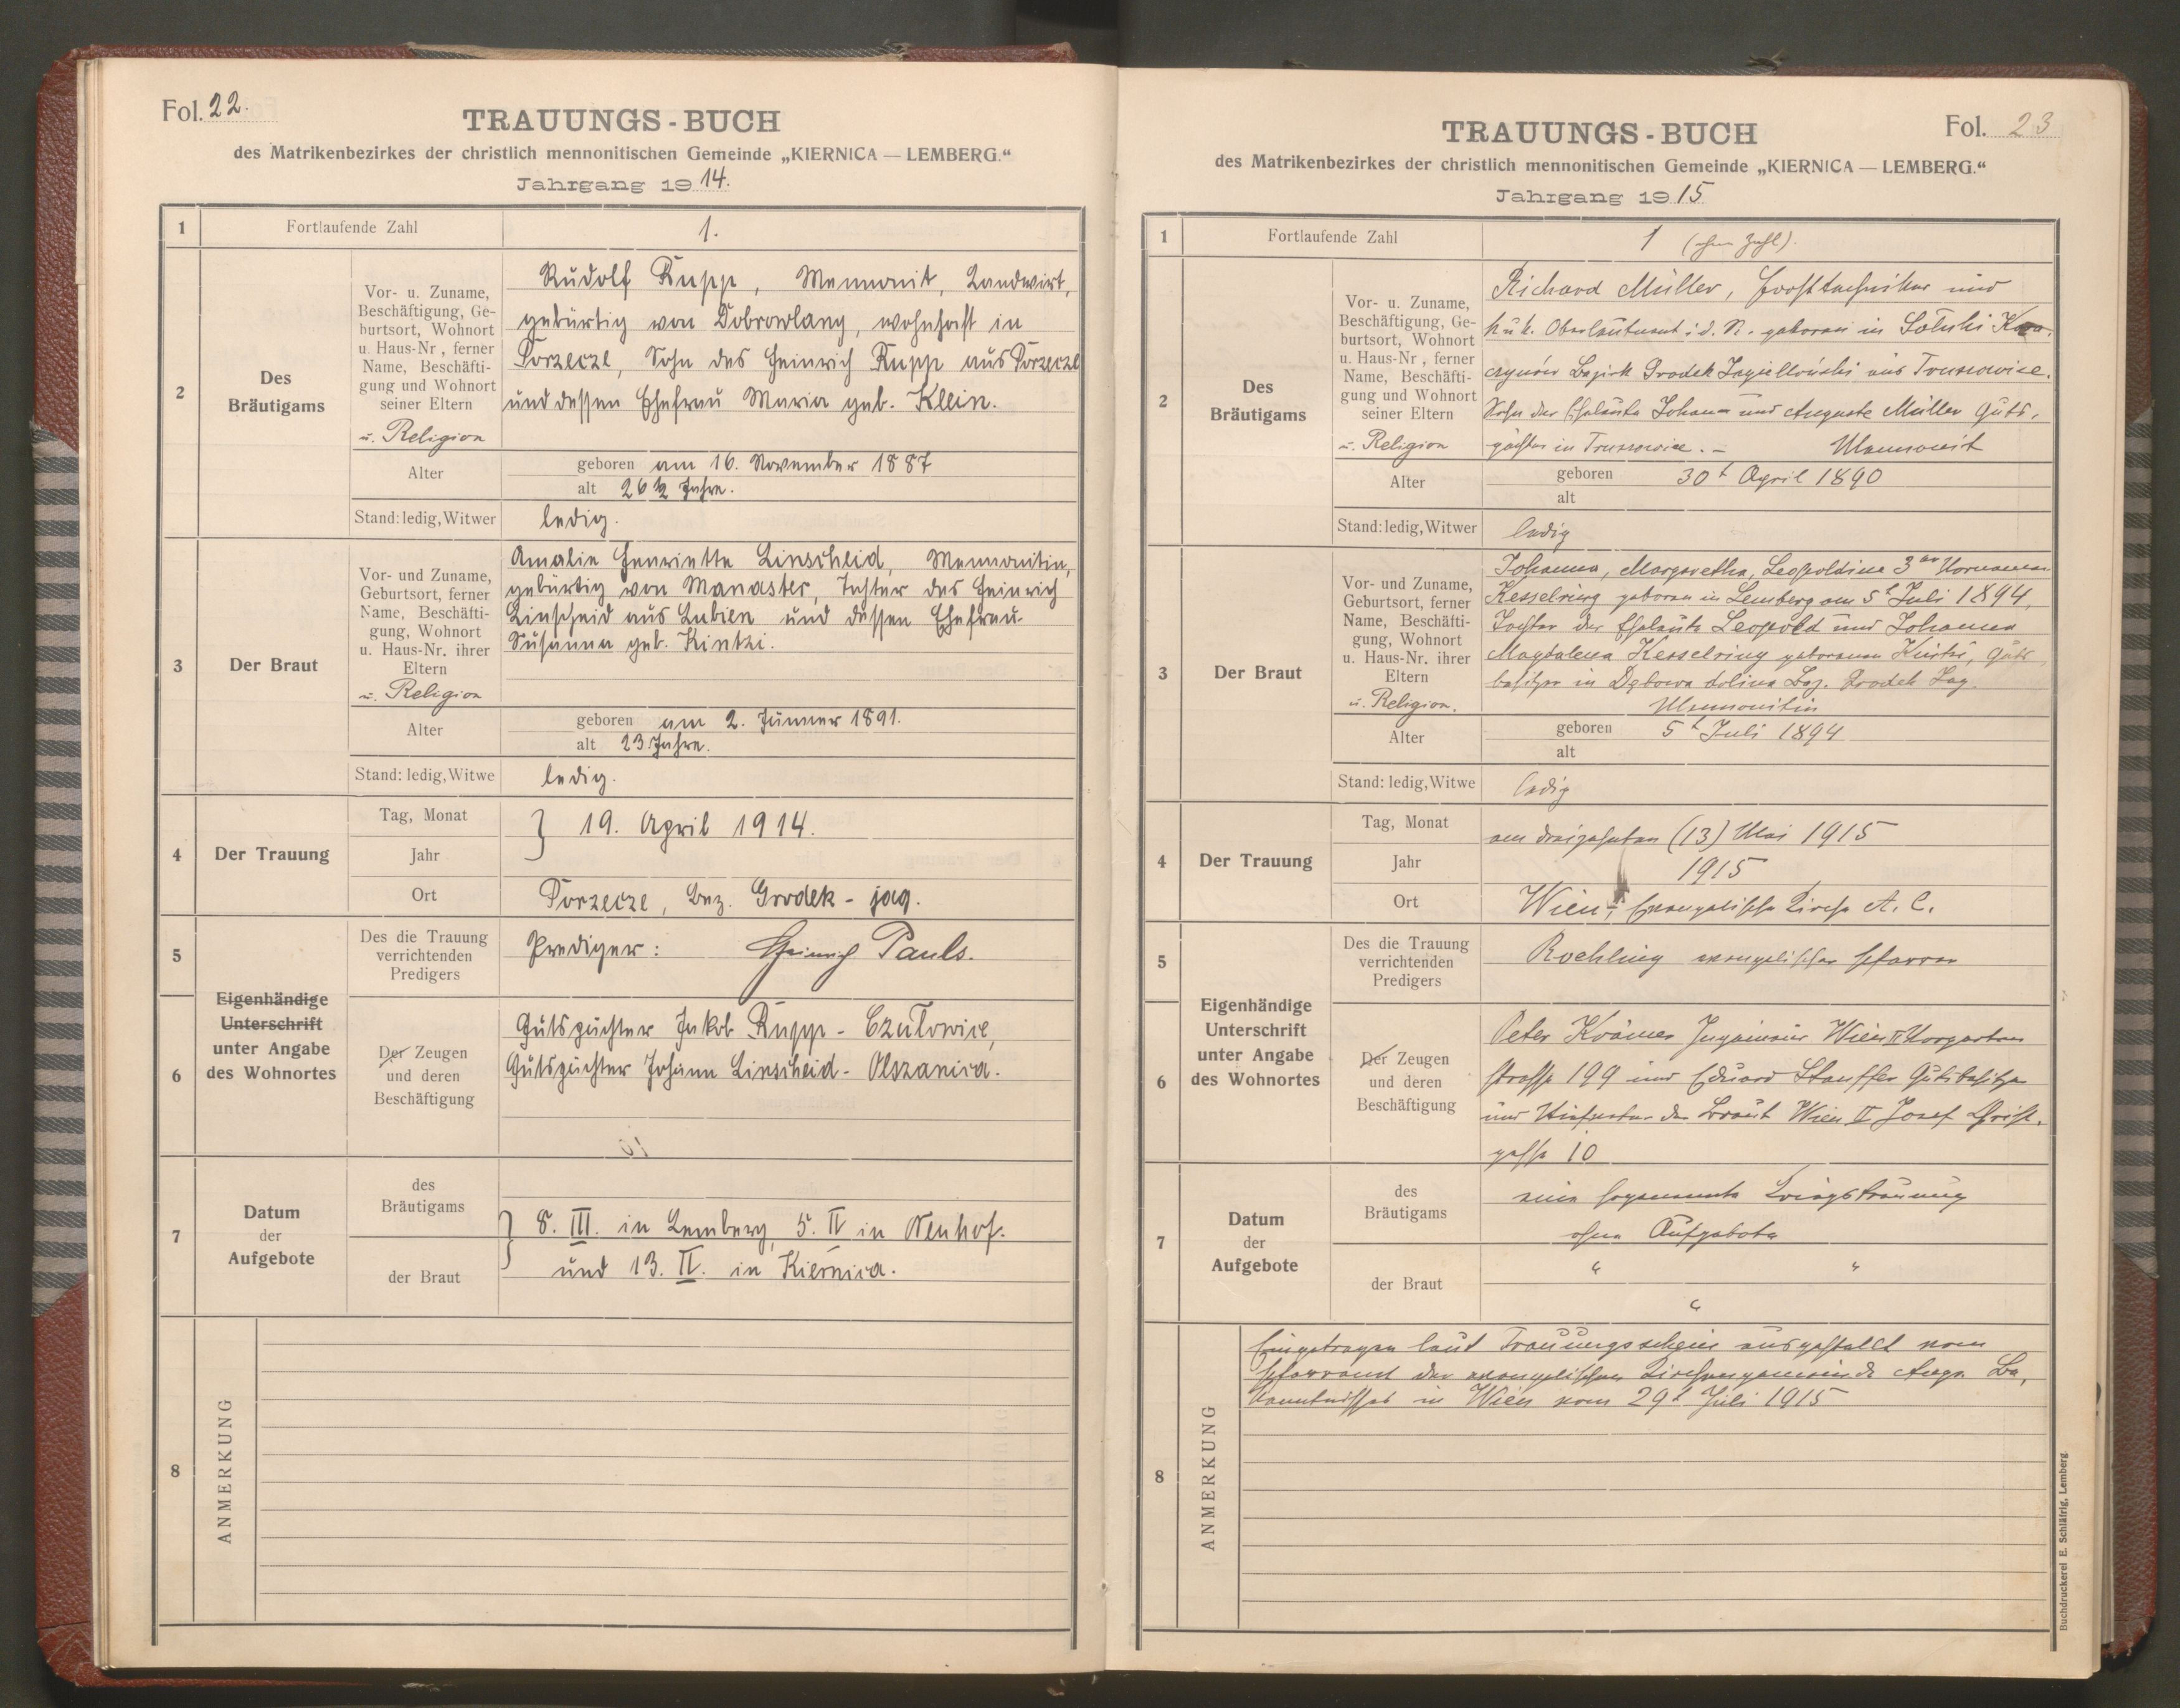 Fol. 22.
TRAUUNGS-BUCH
des Matrikenbezirkes der christlich mennonitischen Gemeinde „KIERNICA — LEMBERG.“
Jahrgang 1914.
1
Fortlaufende Zahl
1.
2
Des
Bräutigams
Vor- u. Zuname,
Beschäftigung, Ge-
burtsort, Wohnort
u. Haus-Nr, ferner
Name, Beschäfti-
gung und Wohnort
seiner Eltern
u. Religion
Rudolf Rupp, Mennonit, Landwirt,
gebürtig von Dobrowlany, wohnhaft in
Porzecze, Sohn des Heinrich Rupp aus Porzecze
und dessen Ehefrau Maria geb. Klein.
Alter
geboren am 16. November 1887
alt 26 ½ Jahre.
Stand: ledig, Witwer
ledig.
3
Der Braut
Vor- und Zuname,
Geburtsort, ferner
Name, Beschäfti-
gung, Wohnort
u. Haus-Nr. ihrer
Eltern
u. Religion
Amalie Henriette Linscheid, Mennonitin,
gebürtig von Manaster, Tochter des Heinrich
Linscheid aus Lubien und dessen Ehefrau
Susanna geb. Kintzi.
Alter
geboren am 2. Jänner 1891.
alt 23 Jahre.
Stand: ledig, Witwe
ledig.
4
Der Trauung
Tag, Monat
Jahr
} 19. April 1914.
Ort
Porzecze, Bez. Grodek-jag.
5
Des die Trauung
verrichtenden
Predigers
Prediger: Heinrich Pauls.
6
Eigenhändige
Unterschrift
unter Angabe
des Wohnortes
Der Zeugen
und deren
Beschäftigung
Gutspächter Jakob Rupp - Czułowice,
Gutspächter Johann Linscheid - Olszanica.
7
Datum
der
Aufgebote
des
Bräutigams
der Braut
} 8. III. in Lemberg, 5. IV in Neuhof.
und 13. IV. in Kiernica.
8
ANMERKUNG
Fol. 23
TRAUUNGS-BUCH
des Matrikenbezirkes der christlich mennonitischen Gemeinde „KIERNICA — LEMBERG.“
Jahrgang 1915
1
Fortlaufende Zahl
1 (ohne Zahl).
2
Des
Bräutigams
Vor- u. Zuname,
Beschäftigung, Ge-
burtsort, Wohnort
u. Haus-Nr, ferner
Name, Beschäfti-
gung und Wohnort
seiner Eltern
u. Religion
Richard Müller, Forsttechniker und
k. u. k. Oberleutnant i. d. R. geboren in
Bezirk Grodek Jagielloński aus
Sohn der Eheleute Johann und Auguste Müller Guts-
pächter in Mennonit
Alter
geboren 30t April 1890
alt
Stand: ledig, Witwer
ledig
3
Der Braut
Vor- und Zuname,
Geburtsort, ferner
Name, Beschäfti-
gung, Wohnort
u. Haus-Nr. ihrer
Eltern
u. Religion.
Johanna, Margaretha, Leopoldine 3 Vornamen
Kesselring geboren in Lemberg am 5t Juli 1894,
Tochter der Eheleute Leopold und Johanna
Magdalena Kesselring geborenen Guts-
besitzer in Dębowa dolina Bez. Grodek Jag.
Mennonitin
Alter
geboren 5t Juli 1894
alt
Stand: ledig, Witwe
ledig
4
Der Trauung
Tag, Monat
am dreizehnten (13) Mai 1915
Jahr
1915
Ort
Wien, Evangelische Kirche A. C.
5
Des die Trauung
verrichtenden
Predigers
Roehling evangelischer Pfarrer
6
Eigenhändige
Unterschrift
unter Angabe
des Wohnortes
Der Zeugen
und deren
Beschäftigung
Peter Krämer Ingenieur Wien II Vorgarten
strasse 199 und Eduard Stauffer Gutsbesitzer
und der Braut Wien II Josef Christ-
gasse 10
7
Datum
der
Aufgebote
des
Bräutigams
eine sogenannte Kriegstrauung
ohne Aufgebote
der Braut
" "
"
8
ANMERKUNG
Eingetragen laut Trauungsschein ausgestellt vom
Pfarramt der evangelischen Kirchengemeinde Augs. Be-
kenntnisses in Wien vom 29t Juli 1915
Buchdruckerei E. Schläfrig, Lemberg.